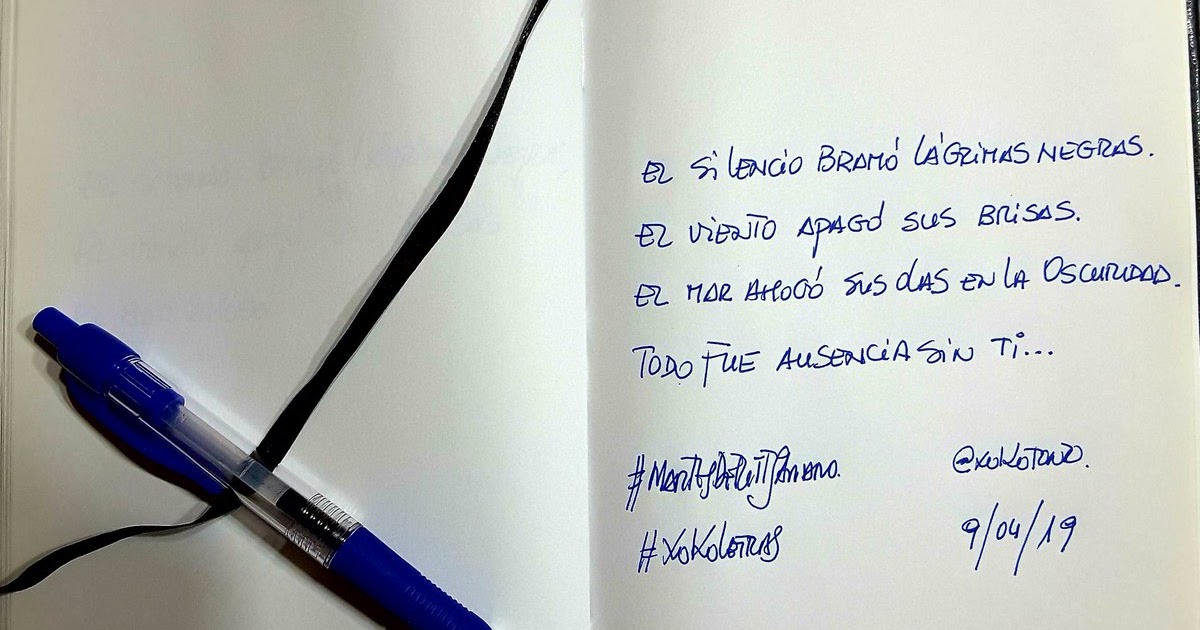 EL SILENCIO BRAMÓ LÁGRIMAS NEGRAS.
EL VIENTO APAGÓ SUS BRISAS.
EL MAR AHOGÓ SUS OLAS EN LA OSCURIDAD.
TODO FUE AUSENCIA SIN TI...
@XOKOTONO.
#XOKOLETRAS 9/04/19